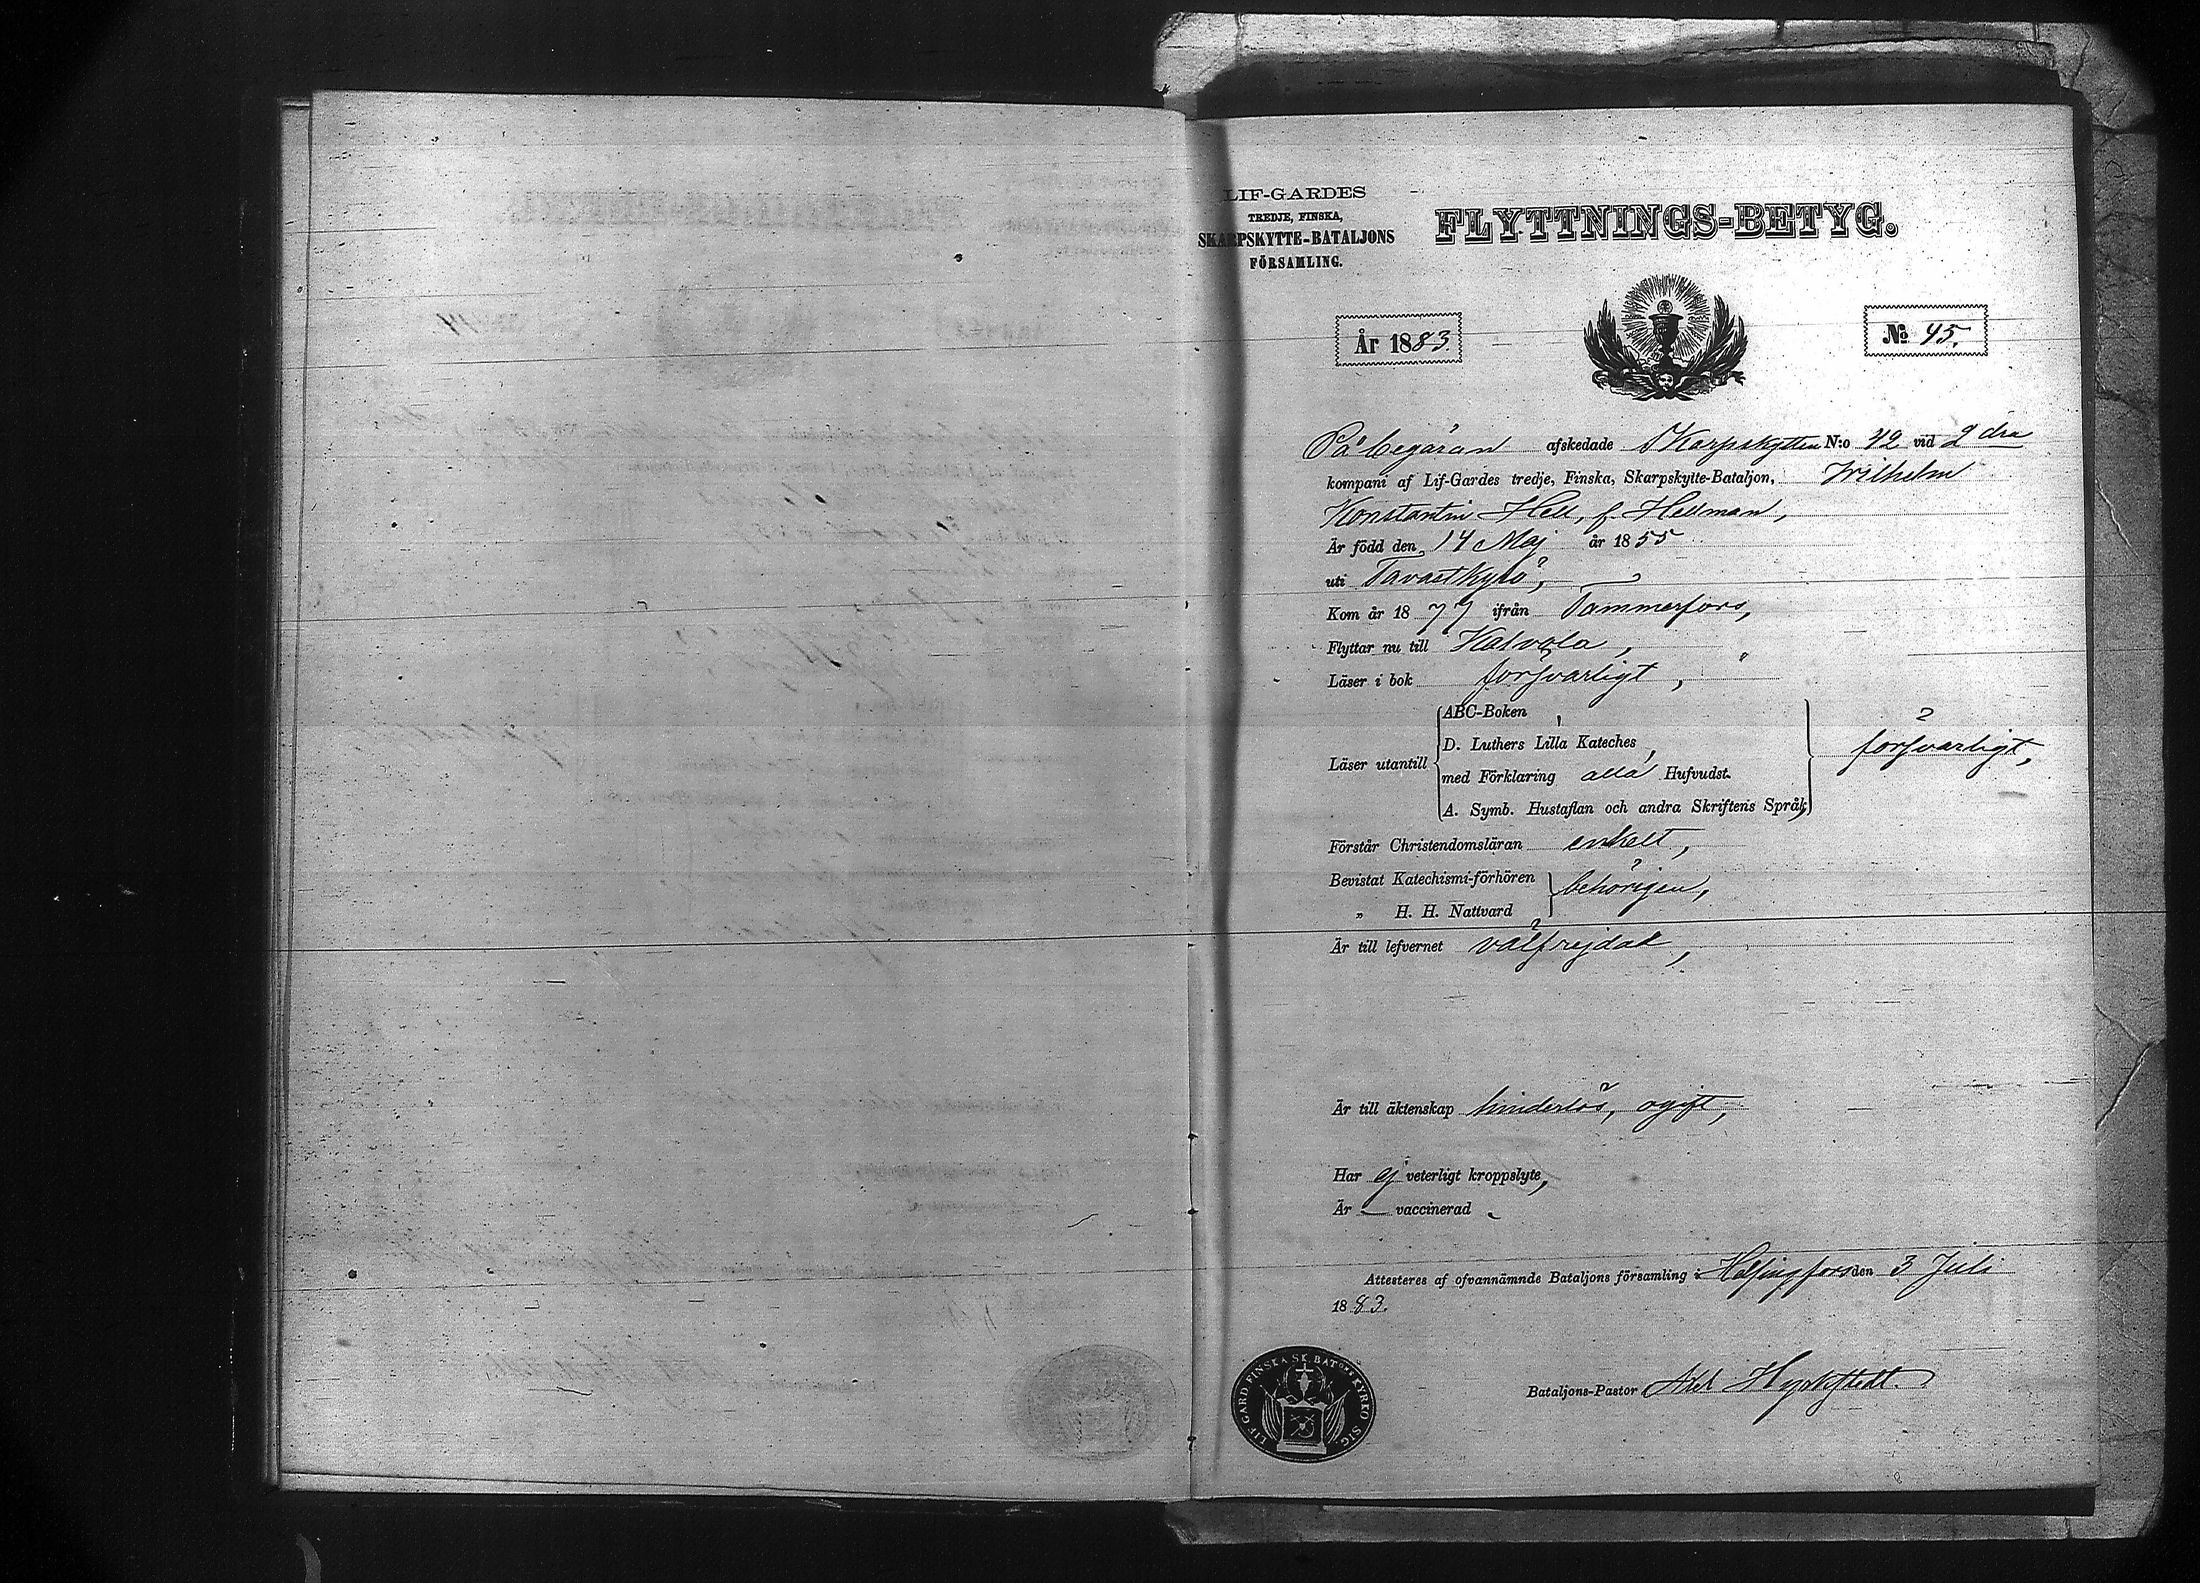 LIF-GARDES
TREDJE, FINSKA,
SKARPSKYTTE-BATALJONS
FÖRSAMLING.
FLYTTNINGS-BETYG.
År 1883
No 45.
På begäran afskedade Skarpskytten N:o 42 vid 2dra
kompani af Lif-Gardes tredje, Finska, Skarpskytte-Bataljon, Wilhelm
Konstantin Hell, f. Hellman,
Är född den 14 Maj år 1855
uti Tavastkyrö,
Kom år 1877 ifrån Tammerfors,
Flyttar nu till Kalvola,
Läser i bok försvarligt,
Läser utantill
ABC-Boken,
D. Luthers Lilla Kateches,
med Förklaring alla Hufvudst.
A. Symb. Hustaflan och andra Skriftens Språk,
försvarligt,
Förstår Christendomsläran enkelt,
Bevistat Katechismi-förhören
„ H. H. Nattvard
behörigen,
Är till lefvernet välfrejdad,
Är till äktenskap hinderlös, ogift,
Har ej veterligt kroppslyte,
Är — vaccinerad.
Attesteres af ofvannämnde Bataljons församling i Helsingfors den 3 Juli
1883.
Bataljons-Pastor Axel Hyrkstedt.
LIF. GARD. FINSKA SK. BATONS KYRKO SIG.